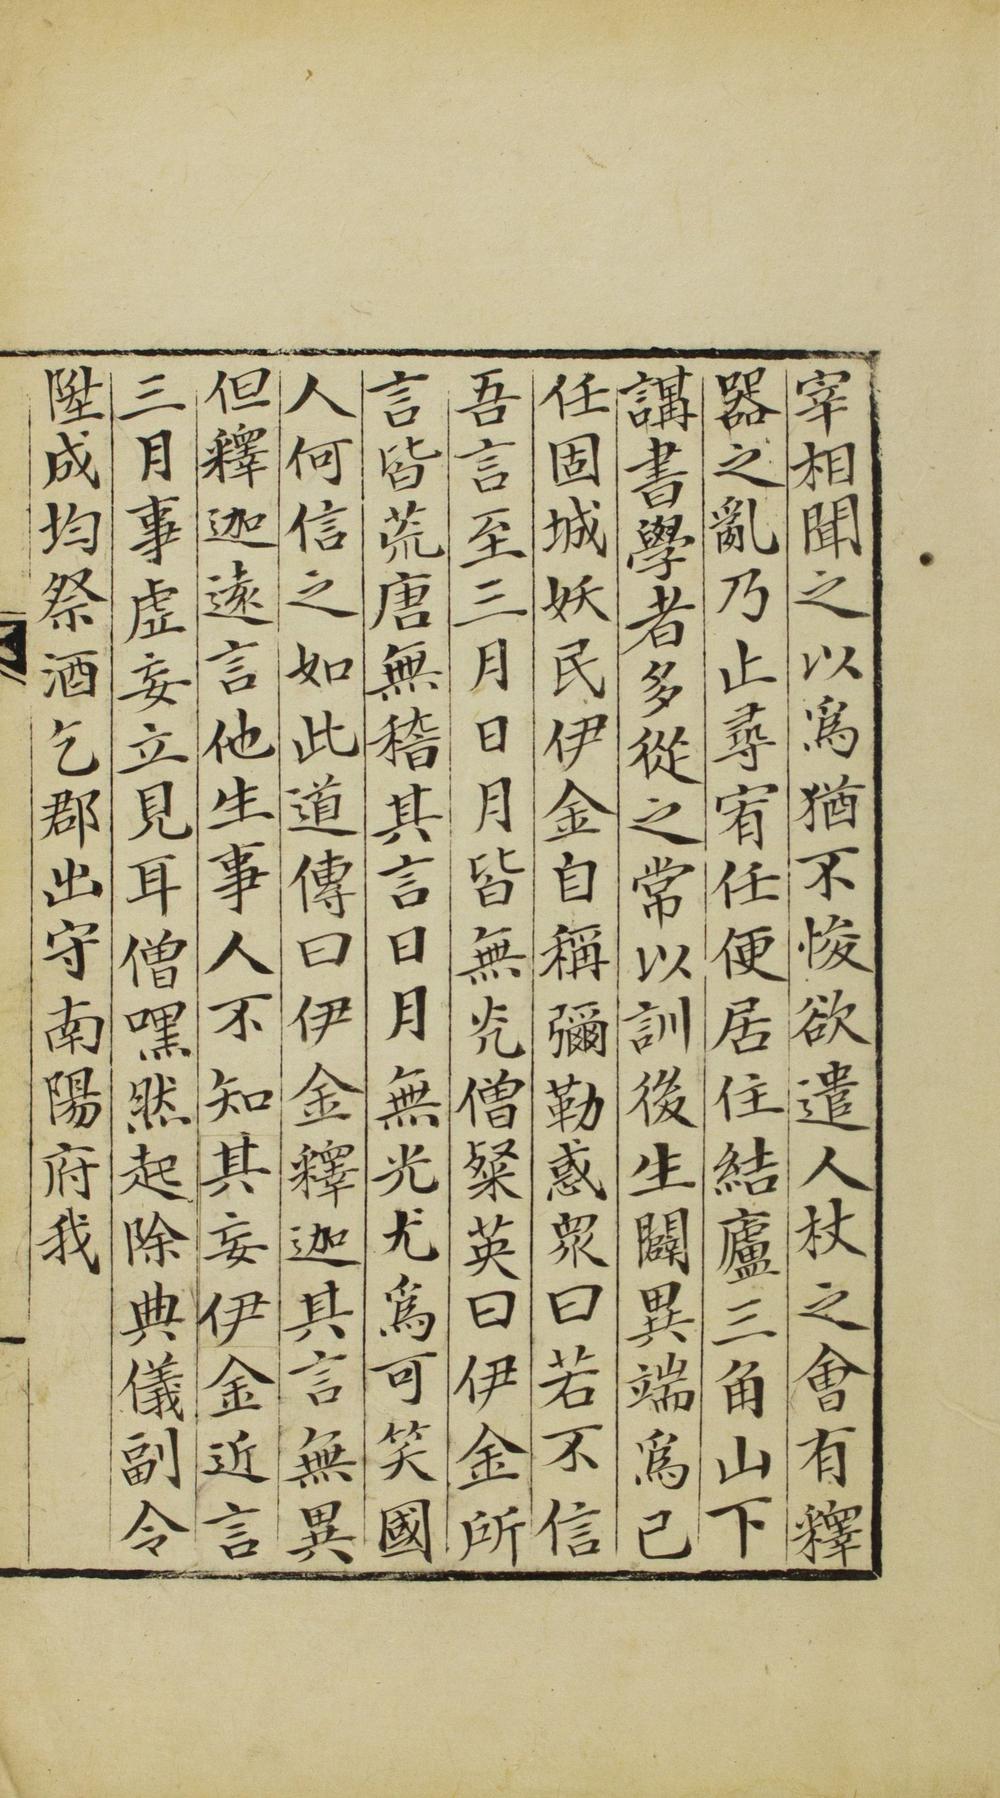 宰相聞之以爲猶不悛欲遣人杖之會有釋
器之亂乃止尋宥任便居住結廬三角山下
講書學者多從之常以訓後生闢異端爲己
任固城妖民伊金自稱彌勒惑衆曰若不信
吾言至三月日月皆無光僧粲英曰伊金所
言皆荒唐無稽其言日月無光尤爲可笑國
人何信之如此道傳曰伊金釋迦其言無異
但釋迦遠言他生事人不知其妄伊金近言
三月事虛妄立見耳僧嘿然起除典儀副令
陞成均祭酒乞郡出守南陽府我